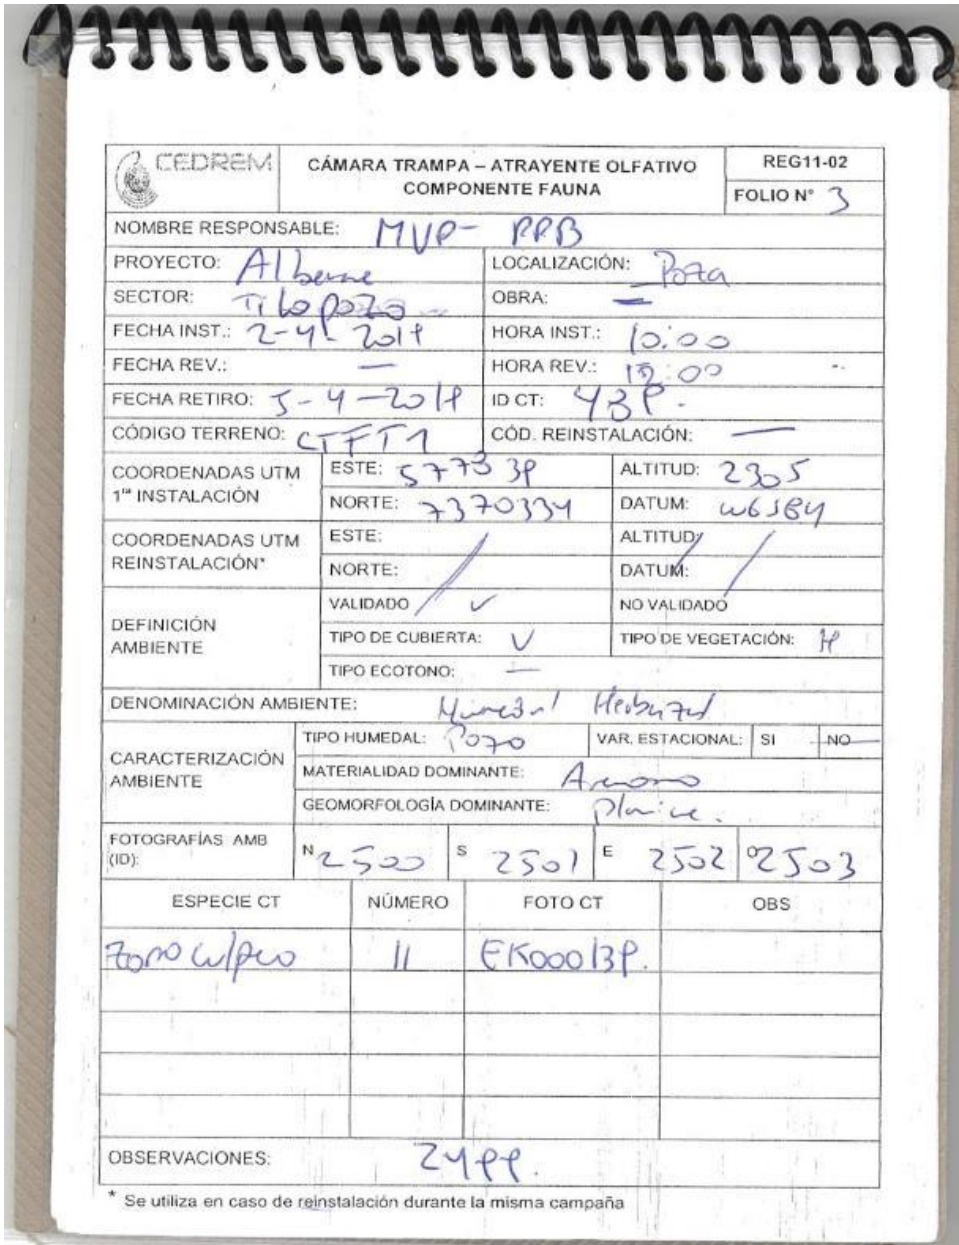 CEDREM
CÁMARA TRAMPA – ATRAYENTE OLFATIVO
COMPONENTE FAUNA
REG11-02
FOLIO N° 3
NOMBRE RESPONSABLE: MVP- PPB
PROYECTO: Albeme LOCALIZACIÓN: Poza
SECTOR: Tilopozo OBRA: —
FECHA INST.: HORA INST.: 10:00
FECHA REV.: — HORA REV.:
FECHA RETIRO: ID CT:
CÓDIGO TERRENO: CTFT1 CÓD. REINSTALACIÓN: —
COORDENADAS UTM
1ra INSTALACIÓN
ESTE: ALTITUD: 2305
NORTE: 7370334 DATUM:
COORDENADAS UTM
REINSTALACIÓN*
ESTE: ALTITUD:
NORTE: DATUM:
DEFINICIÓN
AMBIENTE
VALIDADO ✓ NO VALIDADO
TIPO DE CUBIERTA: V TIPO DE VEGETACIÓN: H
TIPO ECOTONO: —
DENOMINACIÓN AMBIENTE:
CARACTERIZACIÓN
AMBIENTE
TIPO HUMEDAL: Pozo VAR. ESTACIONAL: SI NO
MATERIALIDAD DOMINANTE:
GEOMORFOLOGÍA DOMINANTE: Planicie.
FOTOGRAFÍAS AMB
(ID):
N 2500 S 2501 E 2502 O 2503
ESPECIE CT NÚMERO FOTO CT OBS
Zorro culpeo 11
OBSERVACIONES:
* Se utiliza en caso de reinstalación durante la misma campaña